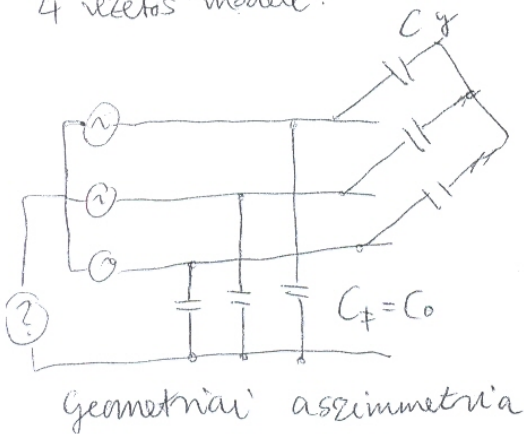 4 vezetős modell:
Cy
~
~
?
C_f = C_0
Geometriai aszimmetria